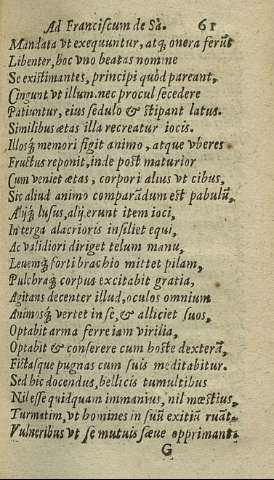 Ad Franciscum de Sâ. 61
Mandata vt exequuntur, atq́; onera ferūt
Libenter, hoc vno beatas nomine
Se existimantes, principi quòd pareant,
Cingunt vt illum. nec procul secedere
Patiuntur, eius sedulo & stipant latus.
Similibus ætas illa recreatur iocis.
Illosq́; memori figit animo, atque vberes
Fructus reponit, inde post maturior
Cum veniet ætas, corpori alius vt cibus,
Sic aliud animo comparādum est pabulū,
Alijq́; lusus, alij erunt item ioci,
In terga alacrioris insiliet equi,
Ac validiori diriget telum manu,
Leuemq́; forti brachio mittet pilam,
Pulchraq́; corpus excitabit gratia,
Agitans decenter illud, oculos omnium
Animosq́; vertet in se, & alliciet suos,
Optabit arma ferream virilia,
Optabit & conserere cum hoste dexterā,
Fictasque pugnas cum suis meditabitur.
Sed hic docendus, bellicis tumultibus
Nil esse quidquam immanius, nil mœstius,
Turmatim, vt homines in suū exitiū ruāt,
Vulneribus vt se mutuis sæue opprimant.
G